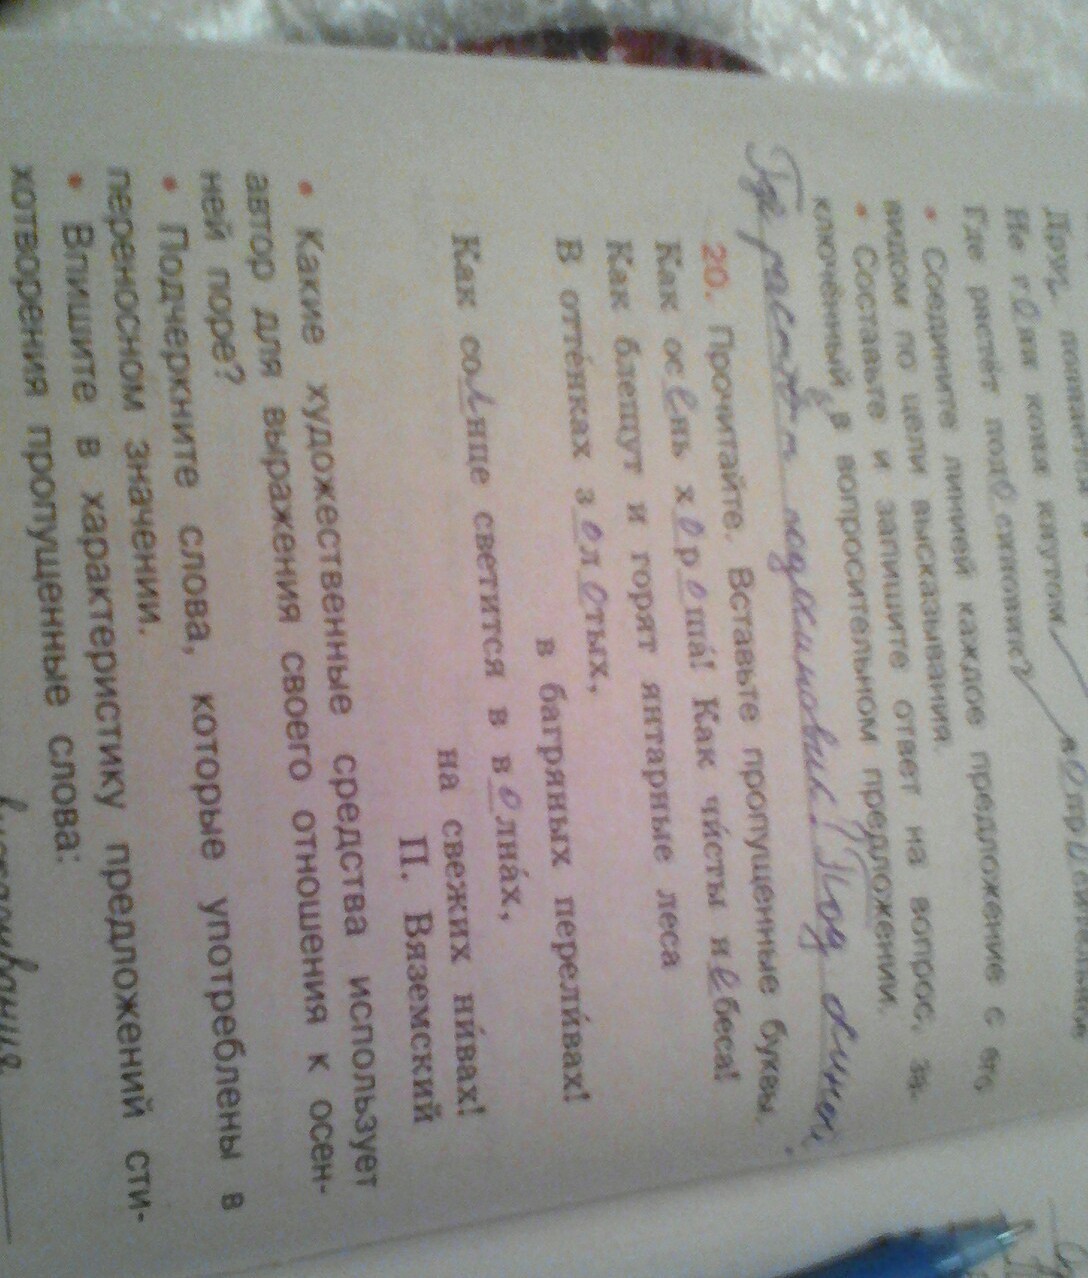 Не гони коня кнутом
Где растёт подосиновик?
• Соедините линией каждое предложение с его
видом по цели высказывания.
• Составьте и запишите ответ на вопрос, за-
ключённый в вопросительном предложении.
Где растёт подосиновик? Под осиной.
20. Прочитайте. Вставьте пропущенные буквы.
Как осень хороша! Как чи́сты небеса!
Как блещут и горят янтарные леса
В отте́нках золотых,
в багряных перели́вах!
Как солнце светится в волна́х,
на свежих ни́вах!
П. Вяземский
• Какие художественные средства использует
автор для выражения своего отношения к осен-
ней поре?
• Подчеркните слова, которые употреблены в
переносном значении.
• Впишите в характеристику предложений сти-
хотворения пропущенные слова: